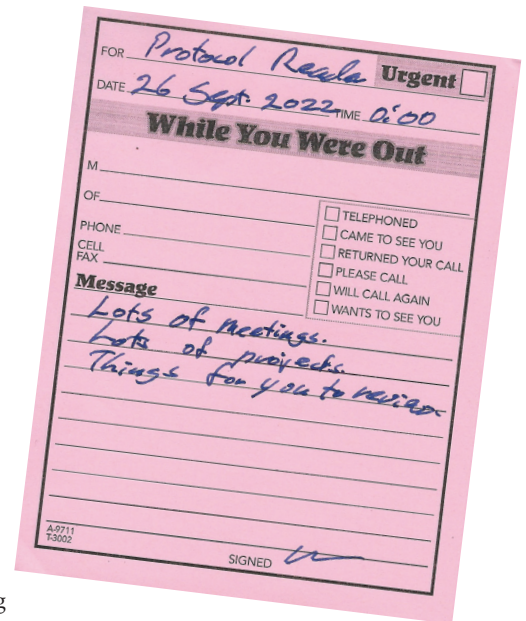 FOR Protocol Reader Urgent
DATE 26 Sept. 2022 TIME 0:00
While You Were Out
M
OF
PHONE
CELL
FAX
TELEPHONED
CAME TO SEE YOU
RETURNED YOUR CALL
PLEASE CALL
WILL CALL AGAIN
WANTS TO SEE YOU
Message
Lots of meetings.
Lots of projects.
Things for you to review.
A-9711
T-3002
SIGNED
g